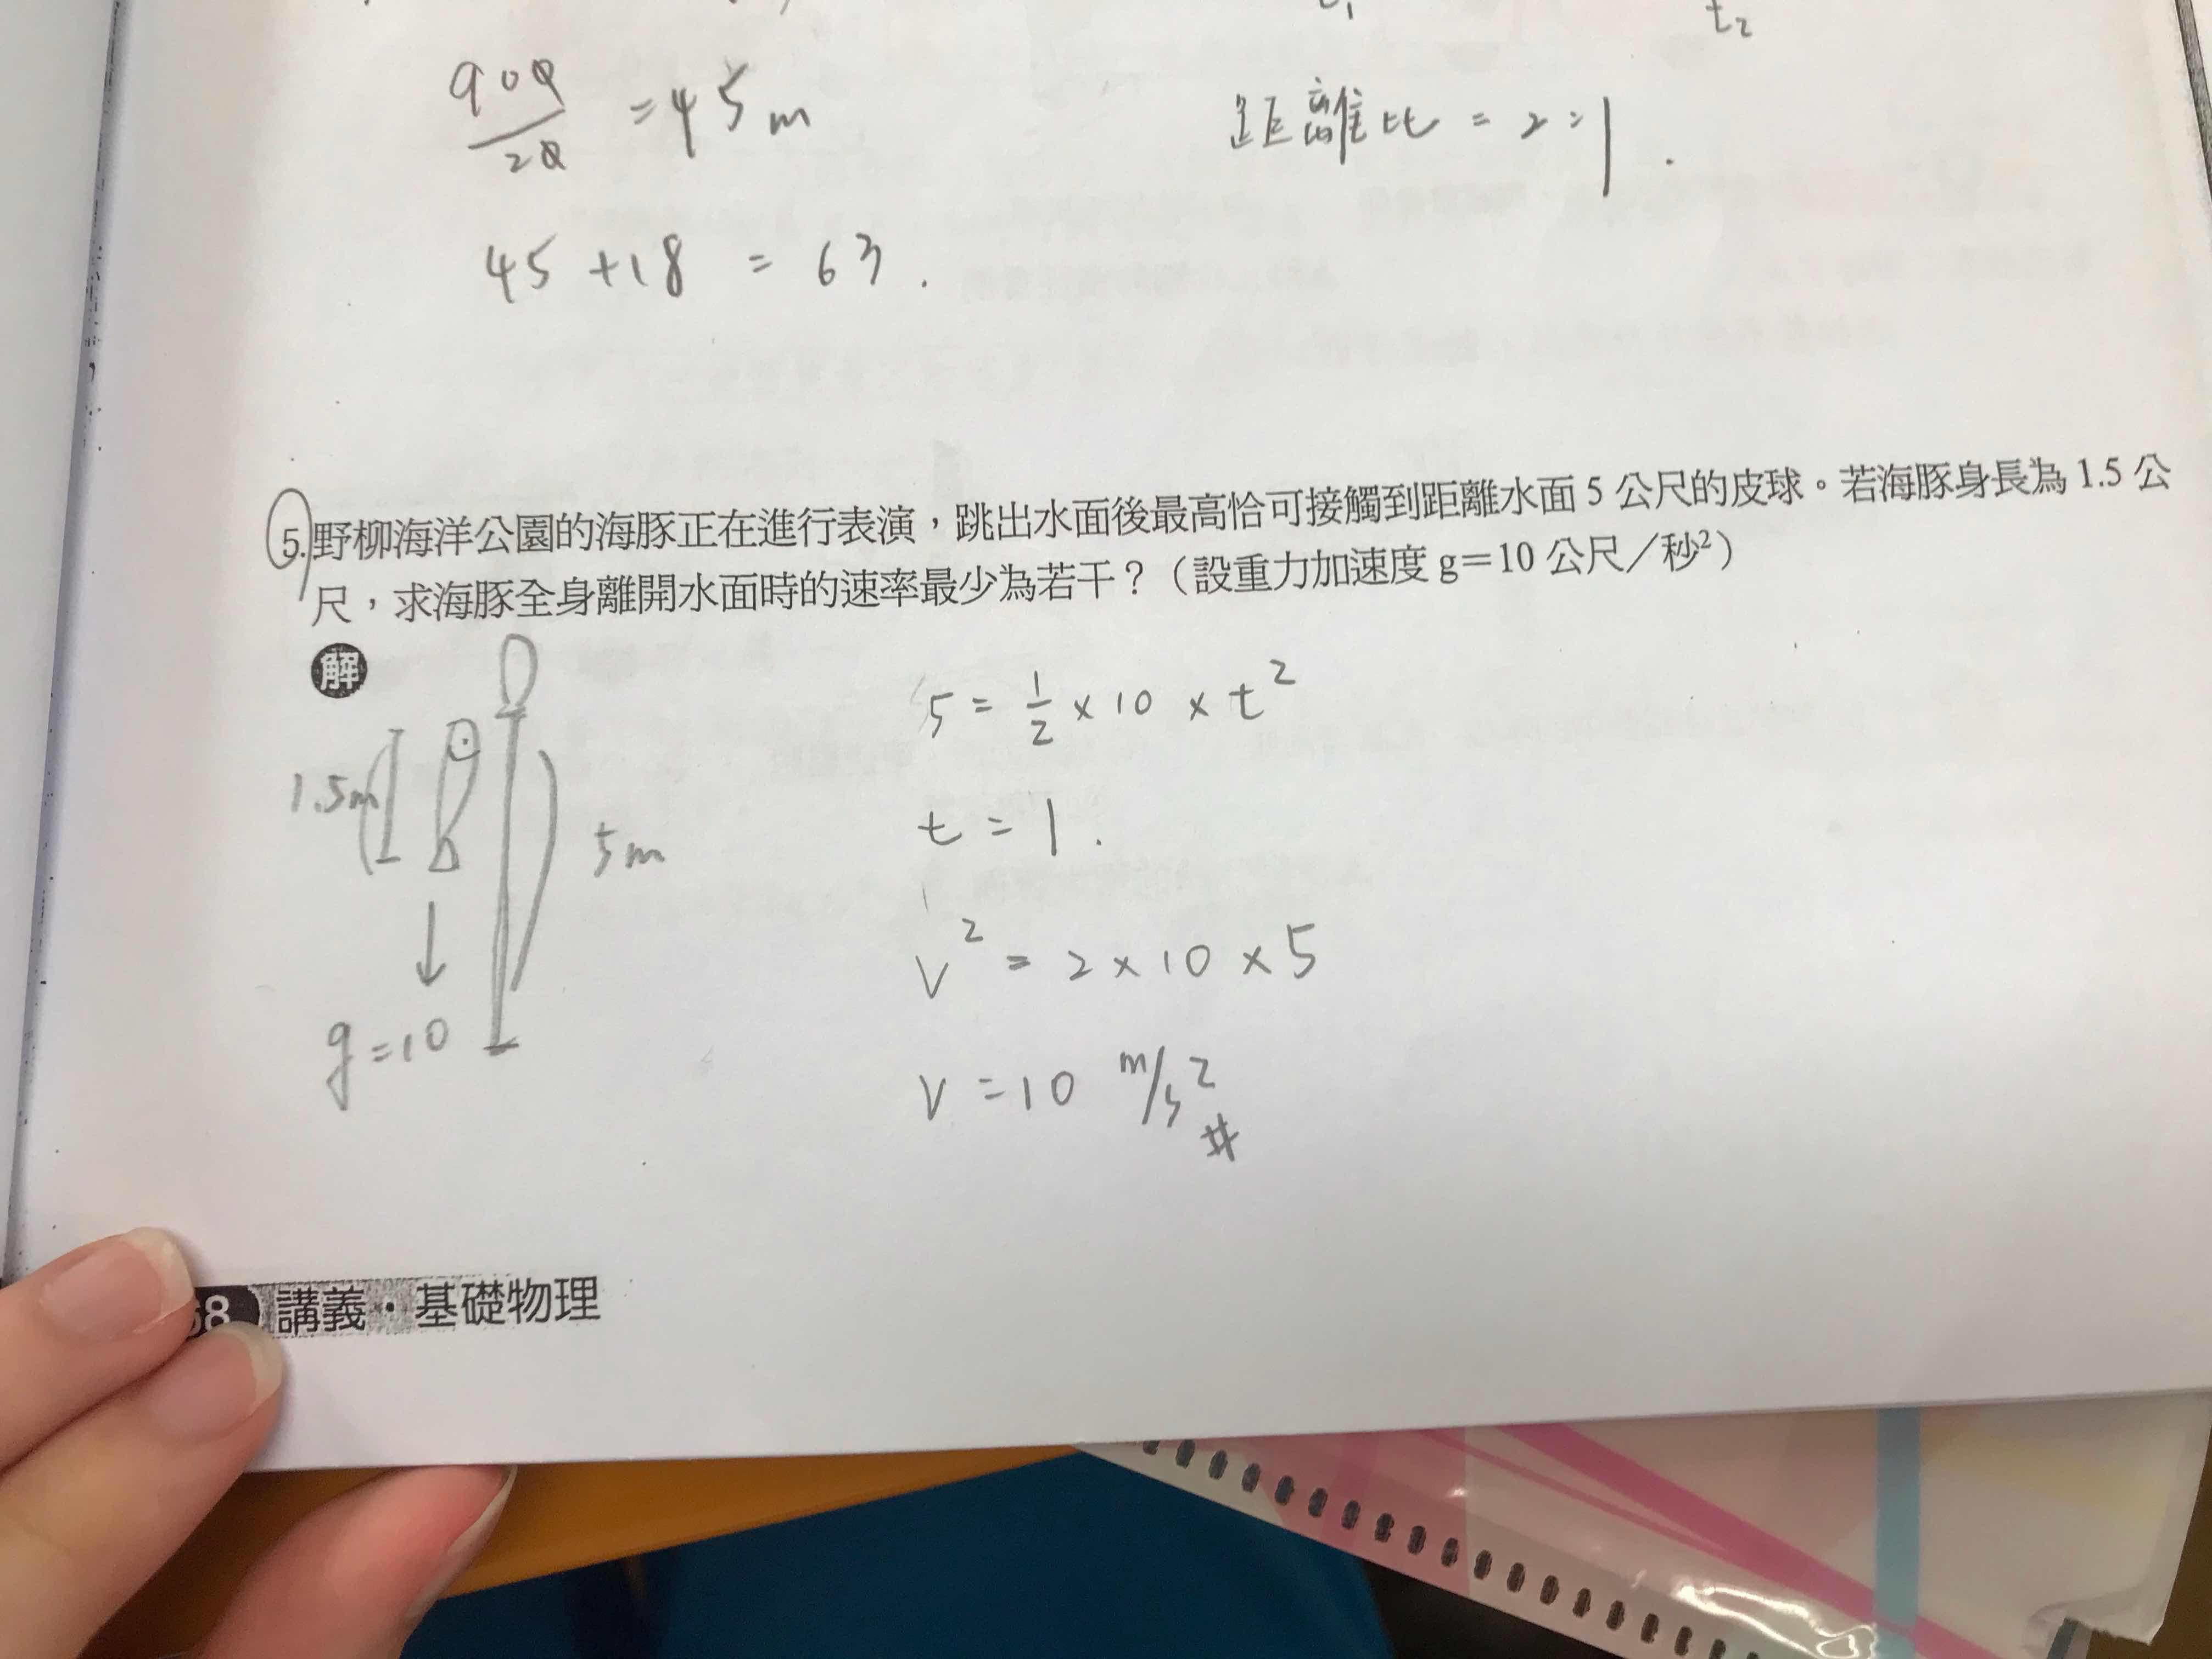 t₁ t₂
900/20 = 45 m
距離比 = 2:1.
45 + 18 = 63.
5.野柳海洋公園的海豚正在進行表演，跳出水面後最高恰可接觸到距離水面 5 公尺的皮球。若海豚身長為 1.5 公
尺，求海豚全身離開水面時的速率最少為若干？（設重力加速度 g＝10 公尺／秒²）
解
1.5m
5m
g=10
5 = 1/2 × 10 × t²
t = 1.
v² = 2 × 10 × 5
v = 10 m/s² #
講義・基礎物理